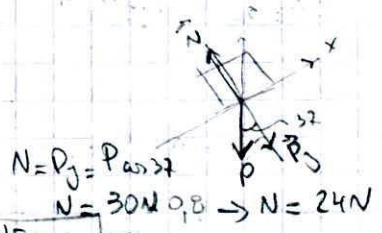 N
x
37
Py
P
N = Py = P cos 37
N = 30N 0,8 → N = 24N